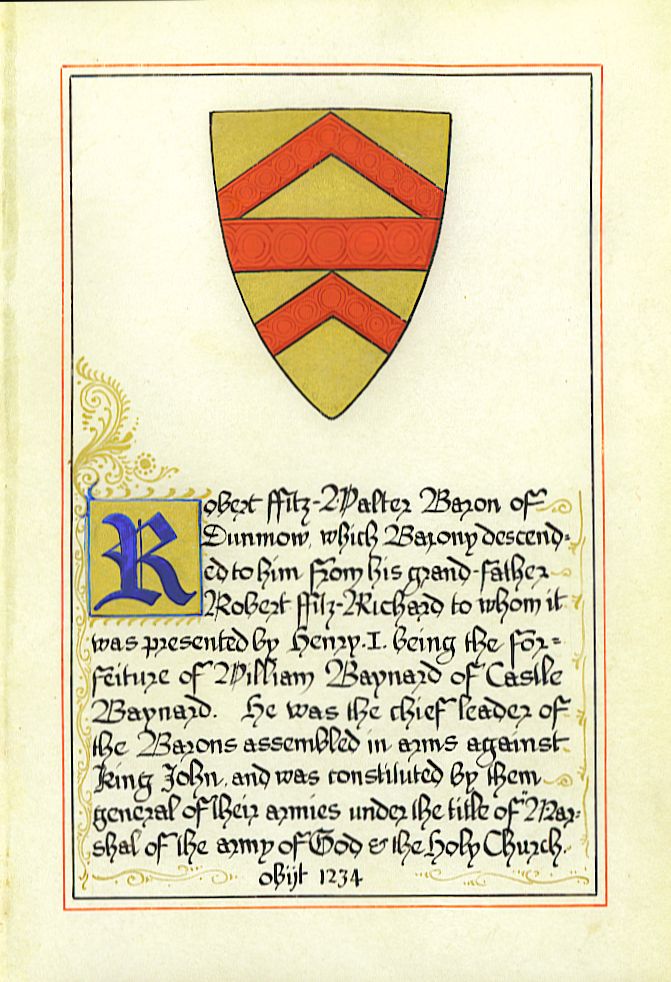 Robert ffitz-Walter Baron of
Dunmow, which Barony descend-
ed to him from his grand-father
Robert ffitz-Richard to whom it
was presented by Henry.I. being the for-
feiture of William Baynard of Castle
Baynard. He was the chief leader of
the Barons assembled in arms against
King John, and was constituted by them
general of their armies under the title of "Mar-
shal of the army of God & the Holy Church.
obijt 1234